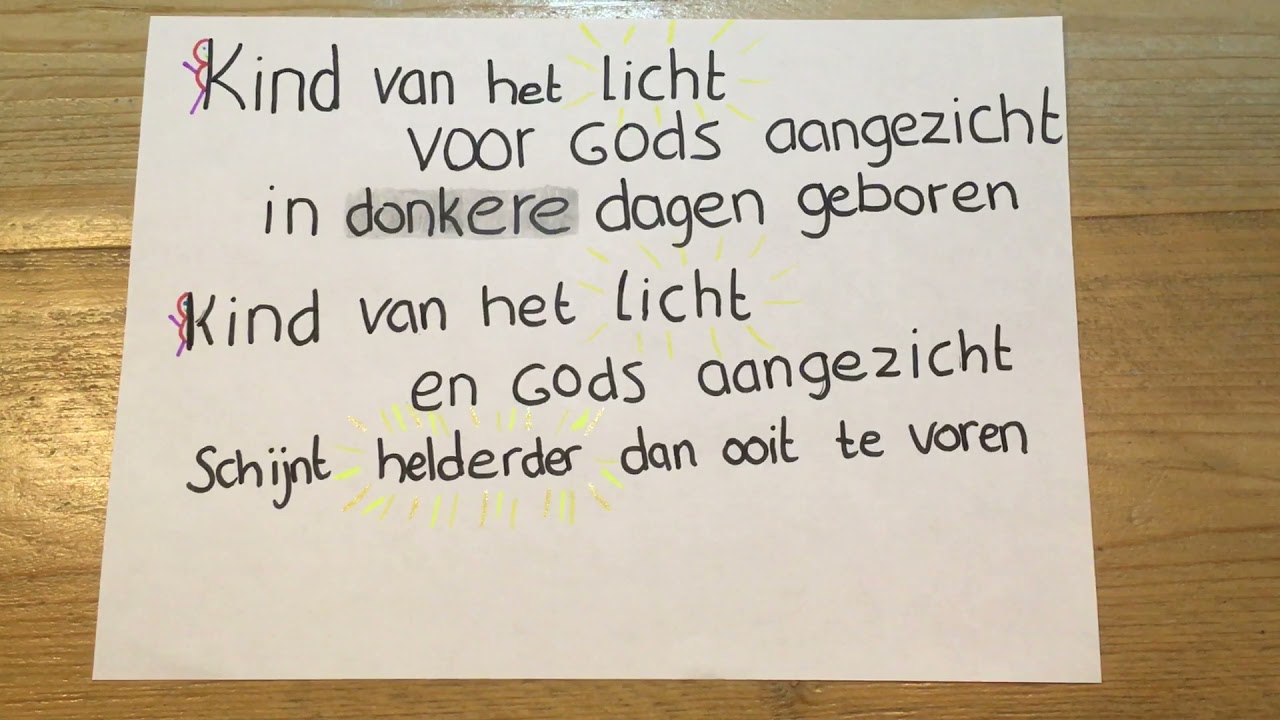 Kind van het licht
voor Gods aangezicht
in donkere dagen geboren
Kind van het licht
en Gods aangezicht
Schijnt helderder dan ooit te voren